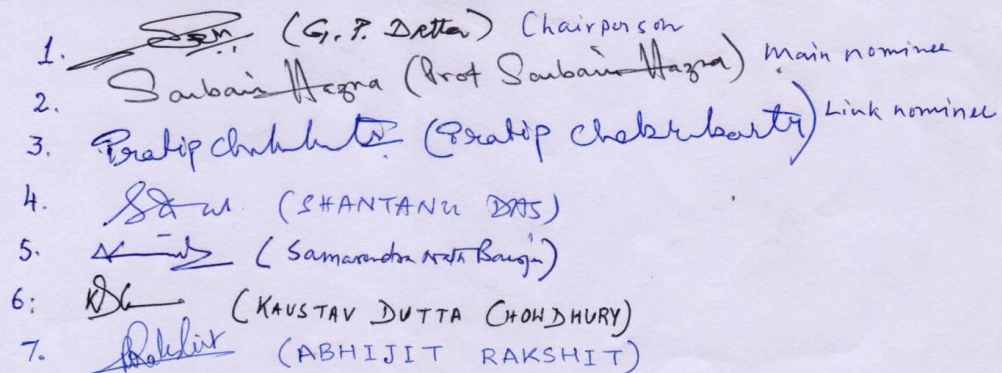 1. (G. P. Dutta) Chairperson
2. Saubair Hazra (Prof Saubair Hazra) Main nominee
3. Pratip Chakrabarti (Pratip Chakrabarti) Link nominee
4. (SHANTANU DAS)
5. (Samarendra Nath)
6: KDC (KAUSTAV DUTTA CHOWDHURY)
7. Rakshit (ABHIJIT RAKSHIT)